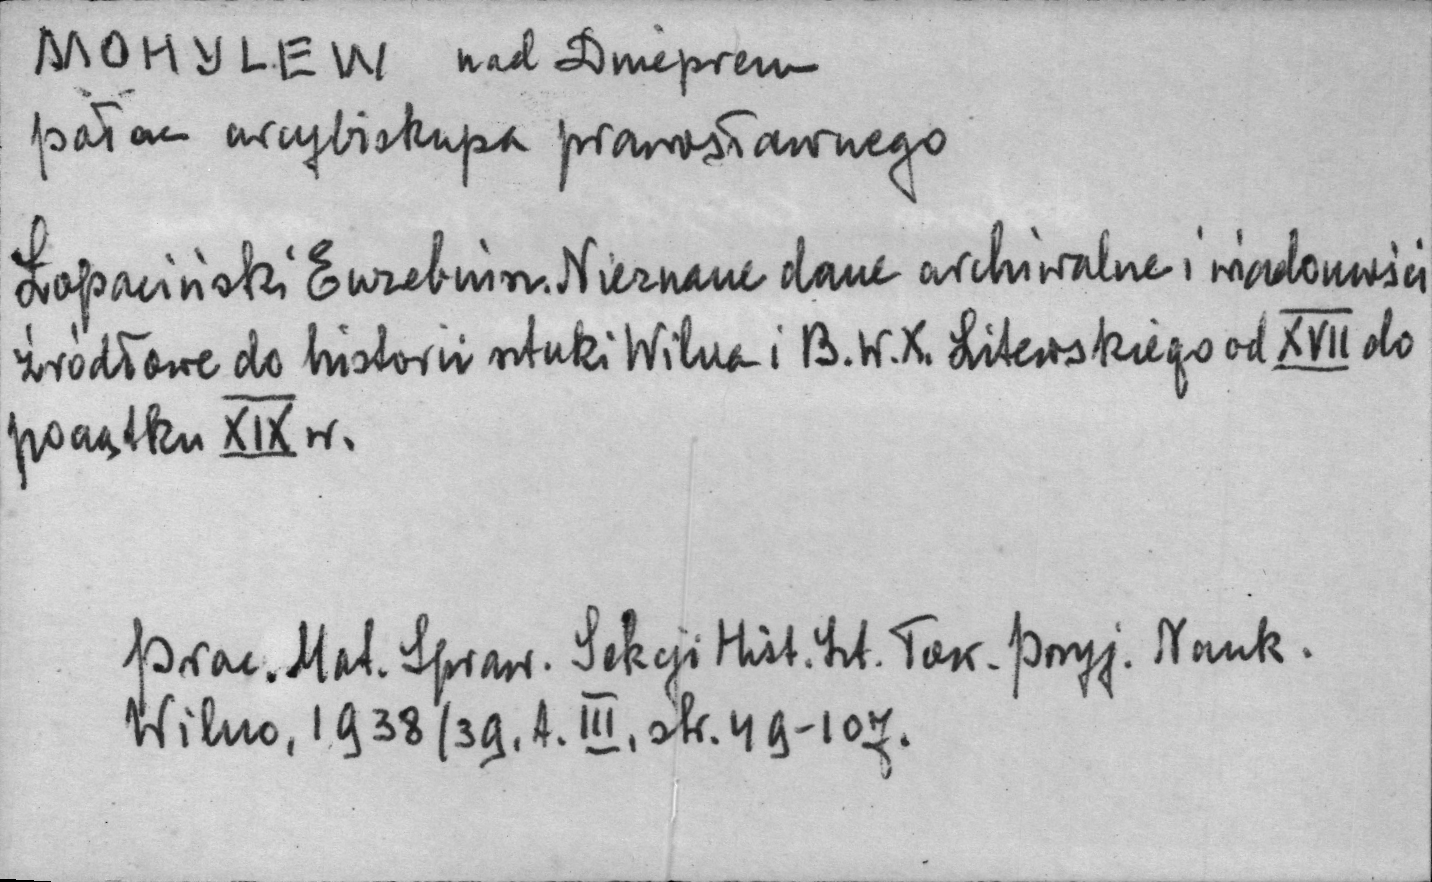 MOHYLEW nad Dnieprem
pałac arcybiskupa prawosławnego
Łopaciński Euzebiusz. Nieznane dane archiwalne i wiadomości
źródłowe do historii sztuki Wilna i B. W. X. Litewskiego od XVII do
początku XIX w.
Prac. Mat. Spraw. Sekcji Hist. Szt. Tow. Przyj. Nauk.
Wilno, 1938/39, t. III, str. 49-107.